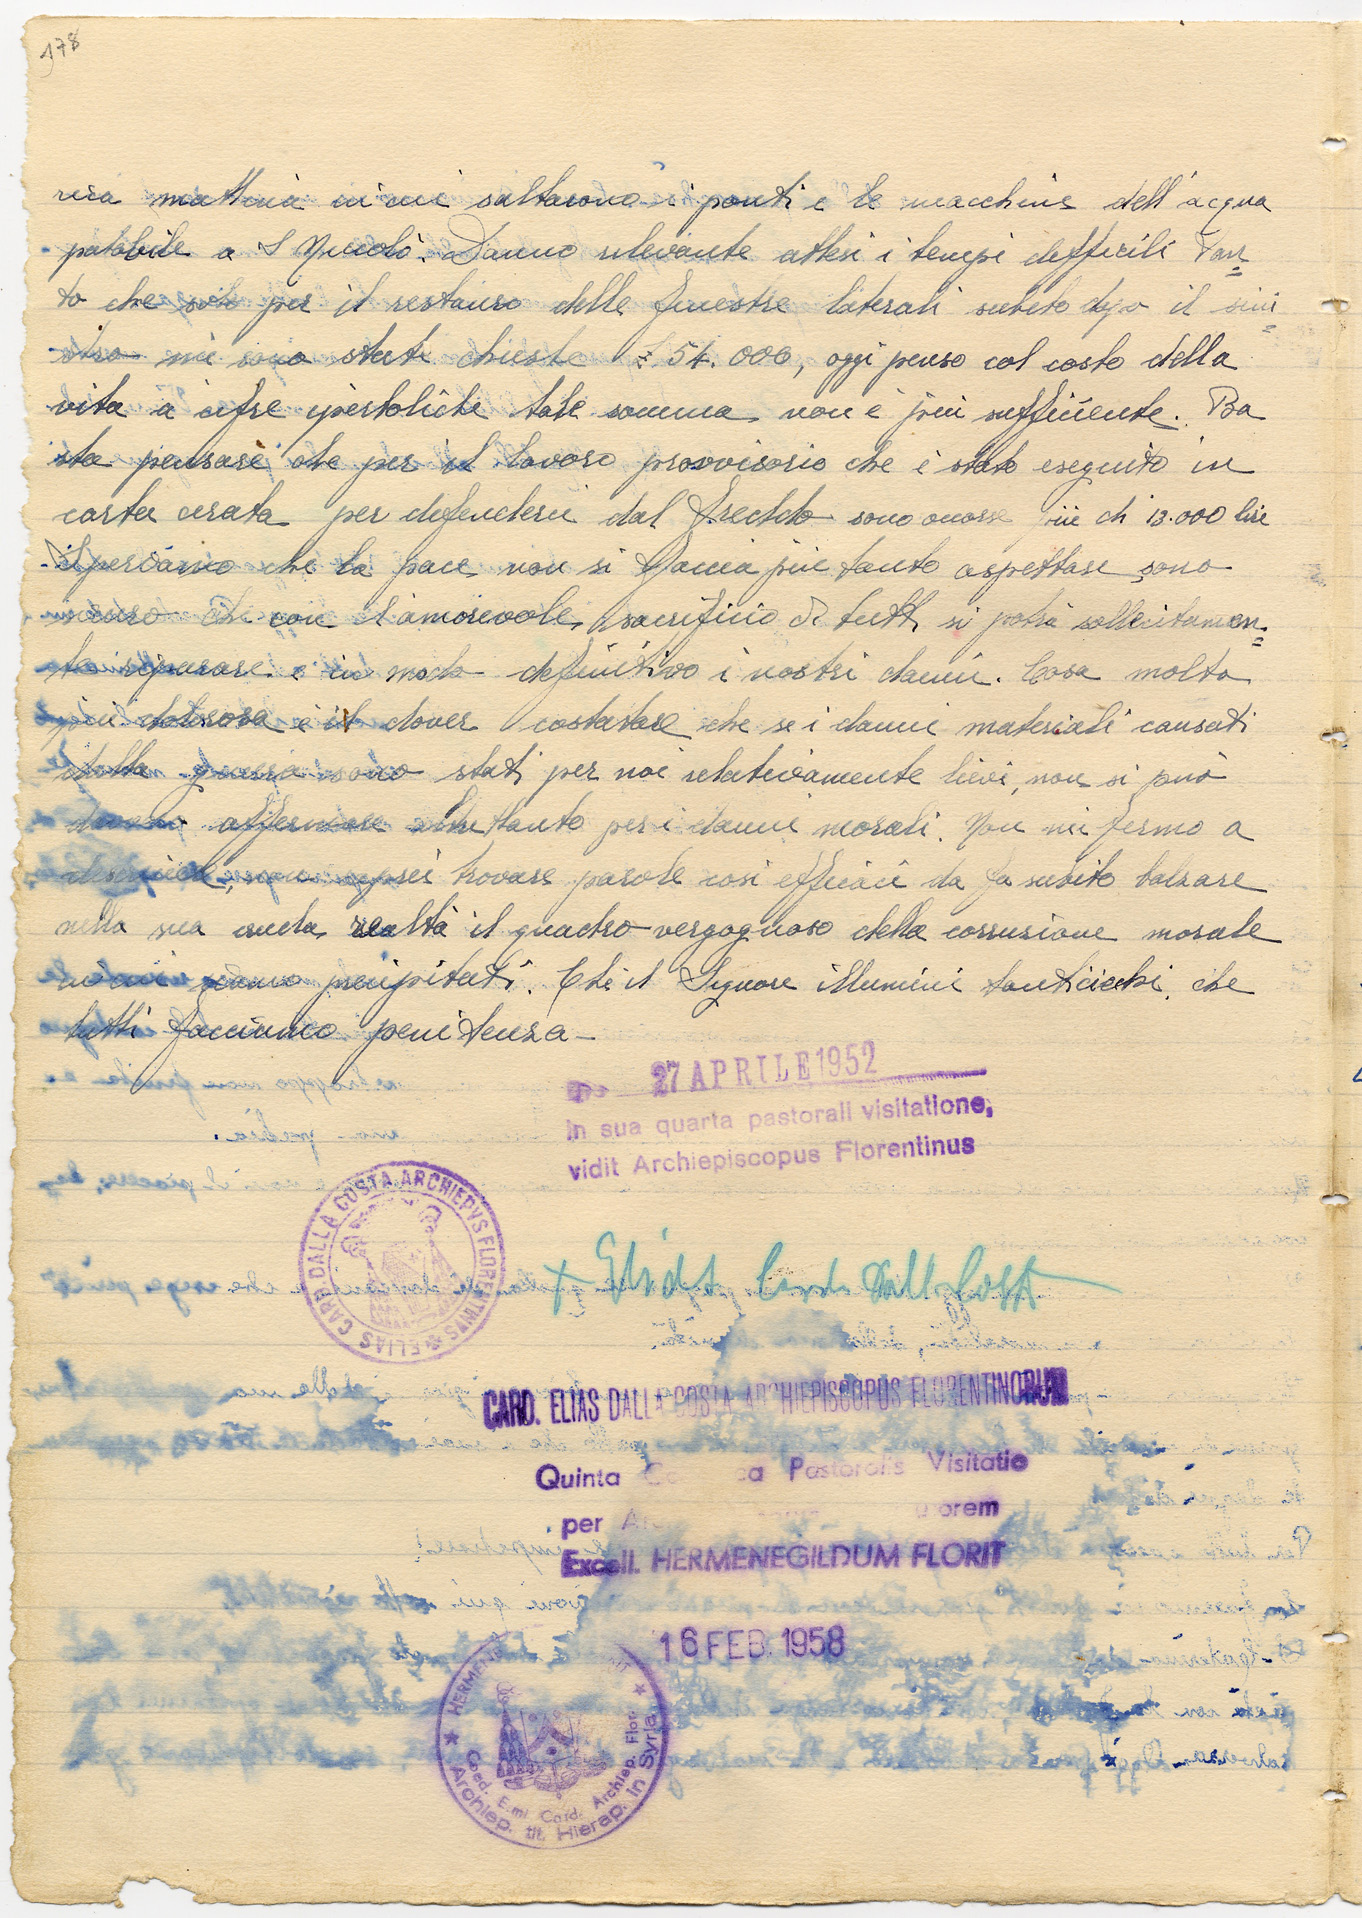 178
rea mattina in cui saltarono i ponti e le macchine dell'acqua
potabile a S Niccolò. Danno rilevante attesi i tempi difficili Tan=
to che solo per il restauro delle finestre laterali subito dopo il sini=
stro mi sono state chieste £ 54.000, oggi penso col costo della
vita a cifre iperboliche tale somma non è più sufficiente. Ba
sta pensare che per il lavoro provvisorio che è stato eseguito in
carta cerata per difenderci dal freddo sono occorse più di 13.000 lire
Speriamo che la pace non si faccia più tanto aspettare sono
sicuro che con l'amorevole sacrificio di tutti si potrà sollecitamen=
te riparare e in modo definitivo i nostri danni. Cosa molto
più dolorosa è il dover costatare che se i danni materiali causati
dalla guerra sono stati per noi relativamente lievi, non si può
affermare altrettanto per i danni morali. Non mi fermo a
descriverli, nè saprei trovare parole così efficaci da fa subito balzare
nella sua cruda realtà il quadro vergognoso della corruzione morale
in cui siamo precipitati. Che il Signore illumini tanti ciechi, che
tutti facciamo penitenza–
27 APRILE 1952
in sua quarta pastorali visitatione,
vidit Archiepiscopus Florentinus
ELIAS CARD. DALLA COSTA ARCHIEPVS FLORENTINVS
+ Elia Card. Dalla Costa
CARD. ELIAS DALLA COSTA ARCHIEPISCOPUS FLORENTINORUM
Quinta Pastoralis Visitatio
per
Excell. HERMENEGILDUM FLORIT
16 FEB. 1958
Coed. E.mi Card. Archiep. Flor.
Archiep. tit. Hierap. in Syria